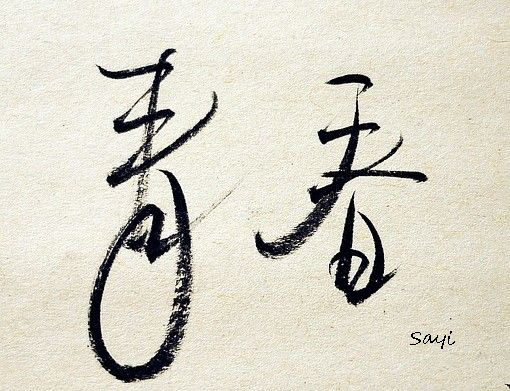 青春
Sayi